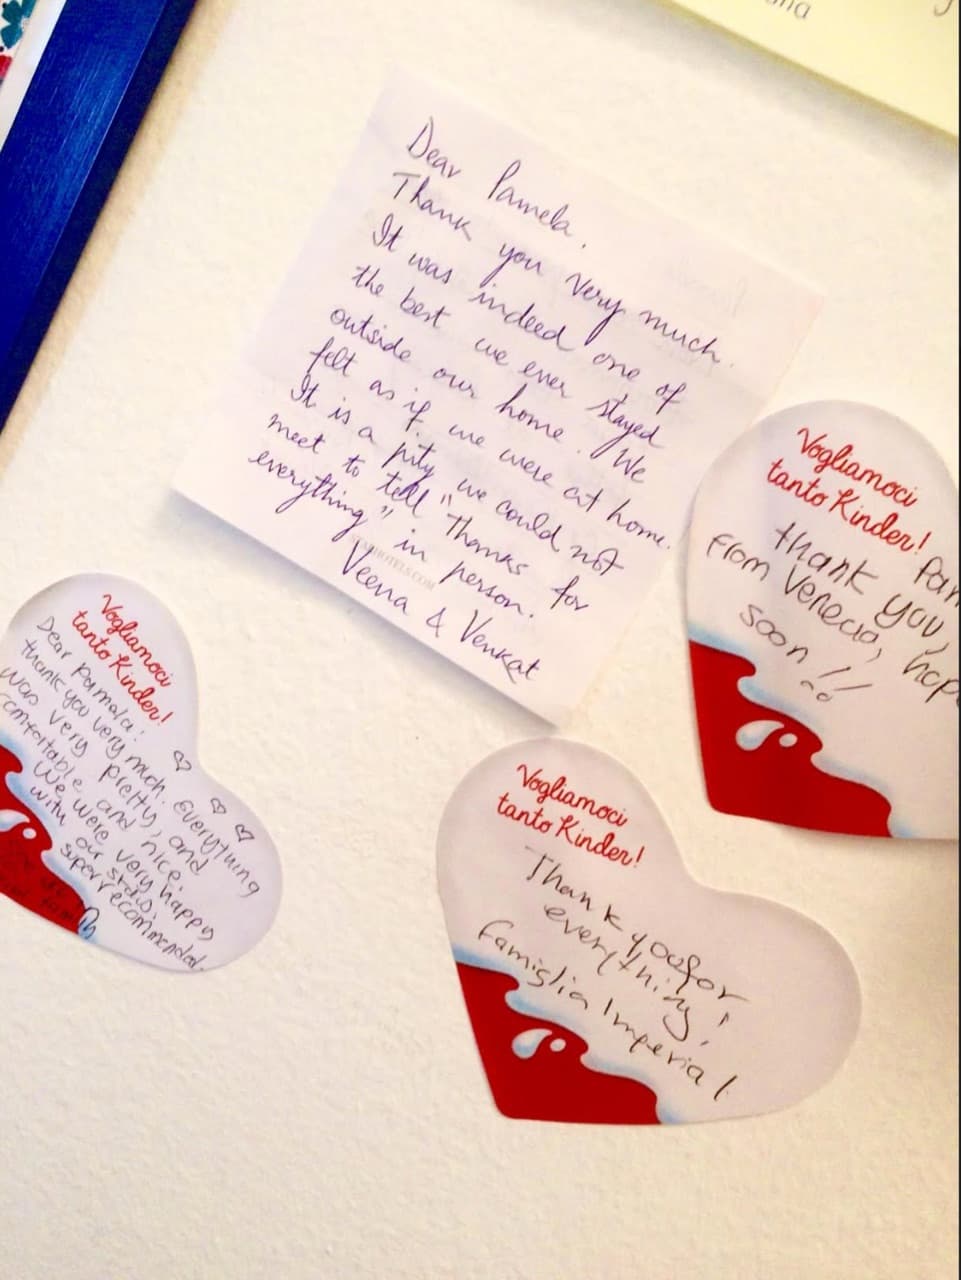 Dear Pamela.
Thank you very much.
It was indeed one of
the best we ever stayed
outside our home. We
felt as if we were at home.
It is a pity we could not
meet to tell "Thanks for
everything" in person.
Veena & Venkat
HOTELS.COM
Vogliamoci
tanto Kinder!
thank you,
from Venecia,
soon!!
Vogliamoci
tanto Kinder!
Dear Pamala:
thank you very much. everything
was very pretty, and
comfortable and nice.
We were very happy
with our stais.
super recommended.
Vogliamoci
tanto Kinder!
Thank you for
everything!
Famiglia Imperial